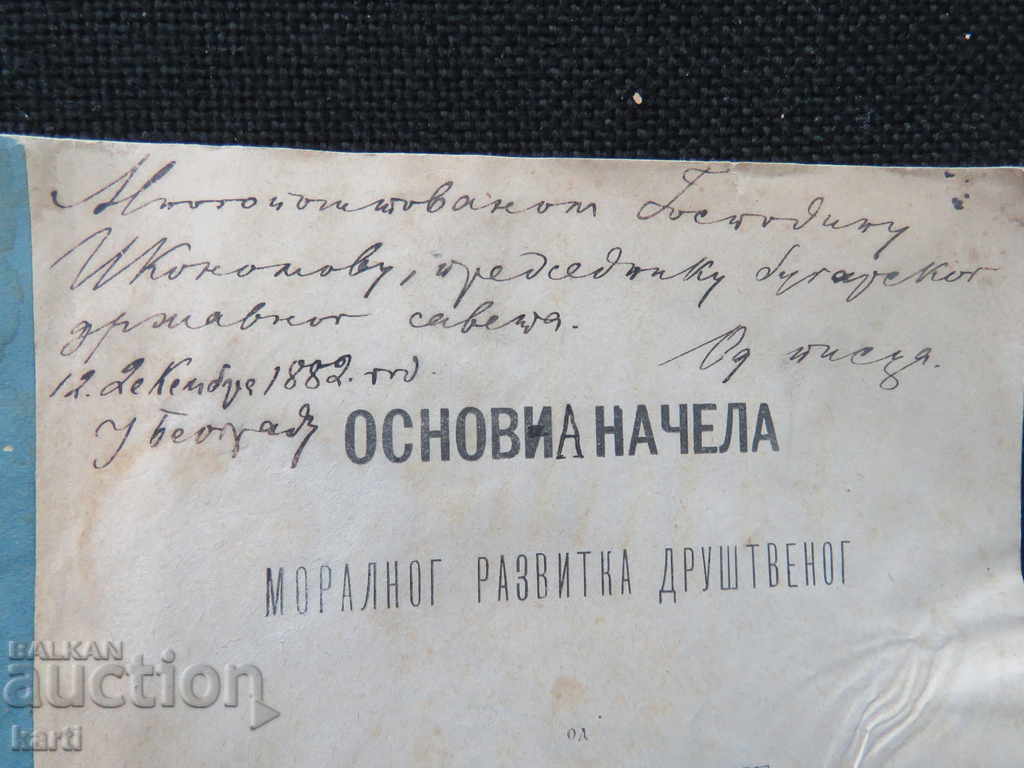 Многопоштованом Господину
Икономову, председнику бугарског
државног савета.
Од писца.
12. Декембра 1882. год.
У Београду
ОСНОВНА НАЧЕЛА
МОРАЛНОГ РАЗВИТКА ДРУШТВЕНОГ
ОД
BALKAN
auction
karti